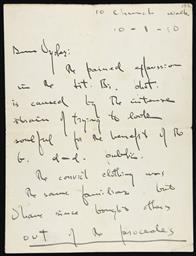 10 Church Walk
10-8-50
Dear Sykes:
The pained expression
in the Lit. Bs. dept.
is caused by the intense
strain of trying to look
soulful for the benefit of the
b. d--d. public.
The convict clothing was
the same familiar but
I have since bought others
out of the proceeds